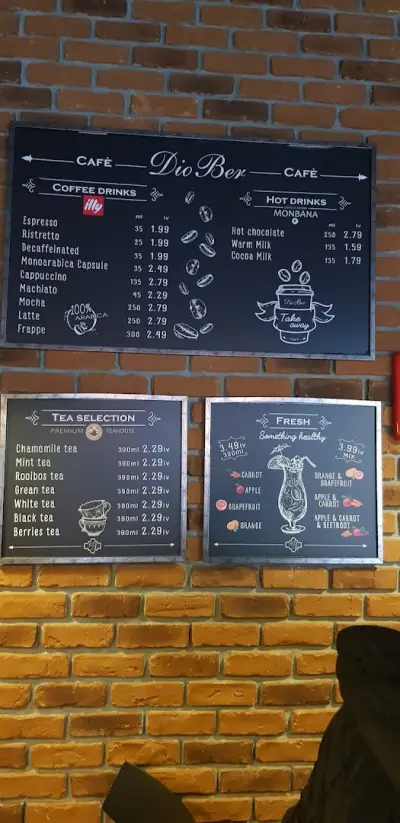 CAFÈ DioBer CAFÈ
COFFEE DRINKS
illy
ml lv
Espresso 35 1.99
Ristretto 25 1.99
Decaffeinated 35 1.99
Monoarabica Capsule 35 2.49
Cappucino 135 2.79
Machiato 45 2.29
Mocha 250 2.79
Latte 250 2.79
Frappe 300 2.49
100%
ARABICA
HOT DRINKS
MONBANA
ml lv
Hot chocolate 250 2.79
Warm Milk 135 1.59
Cocoa Milk 135 1.79
DioBer
Take
away
TEA SELECTION
PREMIUM TEAHOUSE
Chamomile tea 390ml 2.29lv
Mint tea 390ml 2.29lv
Rooibos tea 390ml 2.29lv
Green tea 390ml 2.29lv
White tea 390ml 2.29lv
Black tea 390ml 2.29lv
Berries tea 390ml 2.29lv
FRESH
Something healthy
3.49lv
300ml
3.99lv
MIX
CARROT
APPLE
GRAPEFRUIT
ORANGE
ORANGE &
GRAPEFRUIT
APPLE &
CARROT
APPLE & CARROT
& BEETROOT